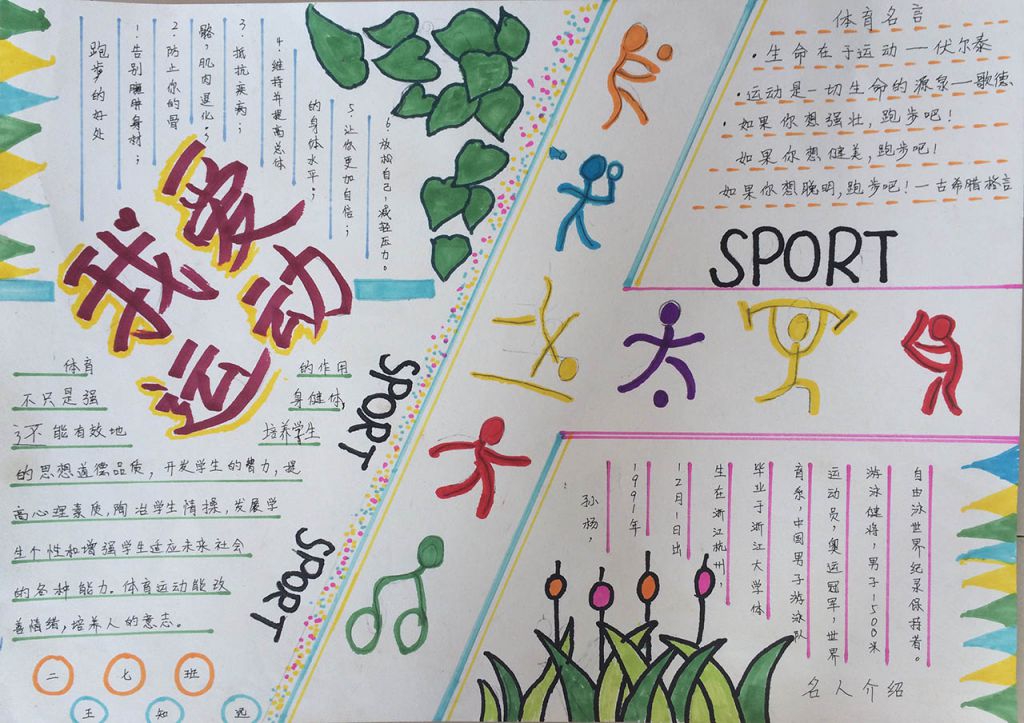 跑步的好处
1.告别臃肿身材;
2.防止你的骨
骼,肌肉退化;
3.抵抗疾病;
4.维持并提高总体
的身体水平;
5.让你更加自信;
6.放松自己,减轻压力。
我爱
运动
体育的作用
不只是强身健体,
还能有效地培养学生
的思想道德品质,开发学生的智力,提
高心理素质,陶冶学生情操,发展学
生个性和增强学生适应未来社会
的各种能力。体育运动能改
善情绪,培养人的意志。
二七班
王知
SPORT
SPORT
体育名言
·生命在于运动——伏尔泰
·运动是一切生命的源泉—歌德
·如果你想强壮,跑步吧!
如果你想健美,跑步吧!
如果你想聪明,跑步吧!—古希腊格言
SPORT
孙杨,
1991年
12月1日出
生在浙江杭州,
毕业于浙江大学体
育系,中国男子游泳队
运动员,奥运冠军,世界
游泳健将,男子1500米
自由泳世界纪录保持者。
名人介绍